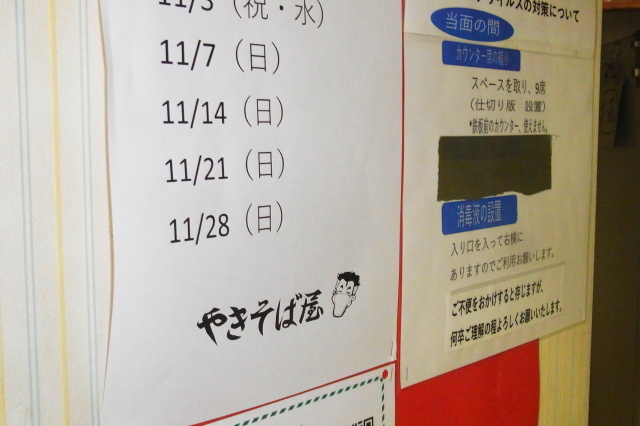 11/3（祝・水）
11/7（日）
11/14（日）
11/21（日）
11/28（日）
やきそば屋
イルスの対策について
当面の間
カウンター席の縮小
スペースを取り、9席
（仕切り版　設置）
*鉄板前のカウンター、使えません。
消毒液の設置
入り口を入って右横に
ありますのでご利用お願いします。
ご不便をおかけすると存じますが、
何卒ご理解の程よろしくお願いいたします。